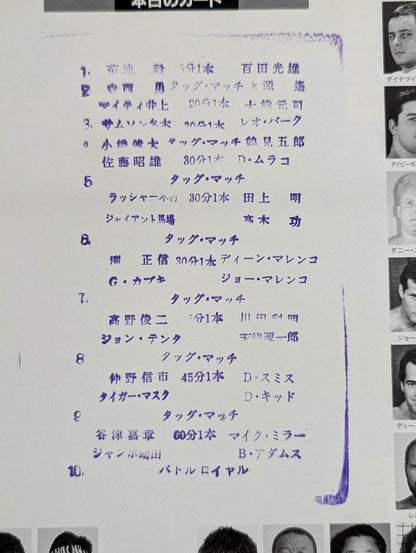 本日のカード
1. 菊地 毅 5分1本 百田光雄
2. 寺西 勇 タッグ・マッチ 
マイティ井上 20分1本 大熊元司
3. サムソン冬木 20分1本 レオ・バーク
小橋健太 タッグ・マッチ 鶴見五郎
佐藤昭雄 30分1本 D・ムラコ
5 タッグ・マッチ
ラッシャー木村 30分1本 田上 明
ジャイアント馬場 高木 功
6. タッグ・マッチ
渕 正信 30分1本 ディーン・マレンコ
G・カブキ ジョー・マレンコ
7. タッグ・マッチ
高野俊二 分1本 川田利明
ジョン・テンタ 天龍源一郎
8 タッグ・マッチ
仲野信市 45分1本 D・スミス
タイガー・マスク D・キッド
9 タッグ・マッチ
谷津嘉章 60分1本 マイク・ミラー
ジャンボ鶴田 B・アダムス
10. バトルロイヤル
ダイナマイ
デイビーボ
ダニー・ス
ジョー・
ディー
レ